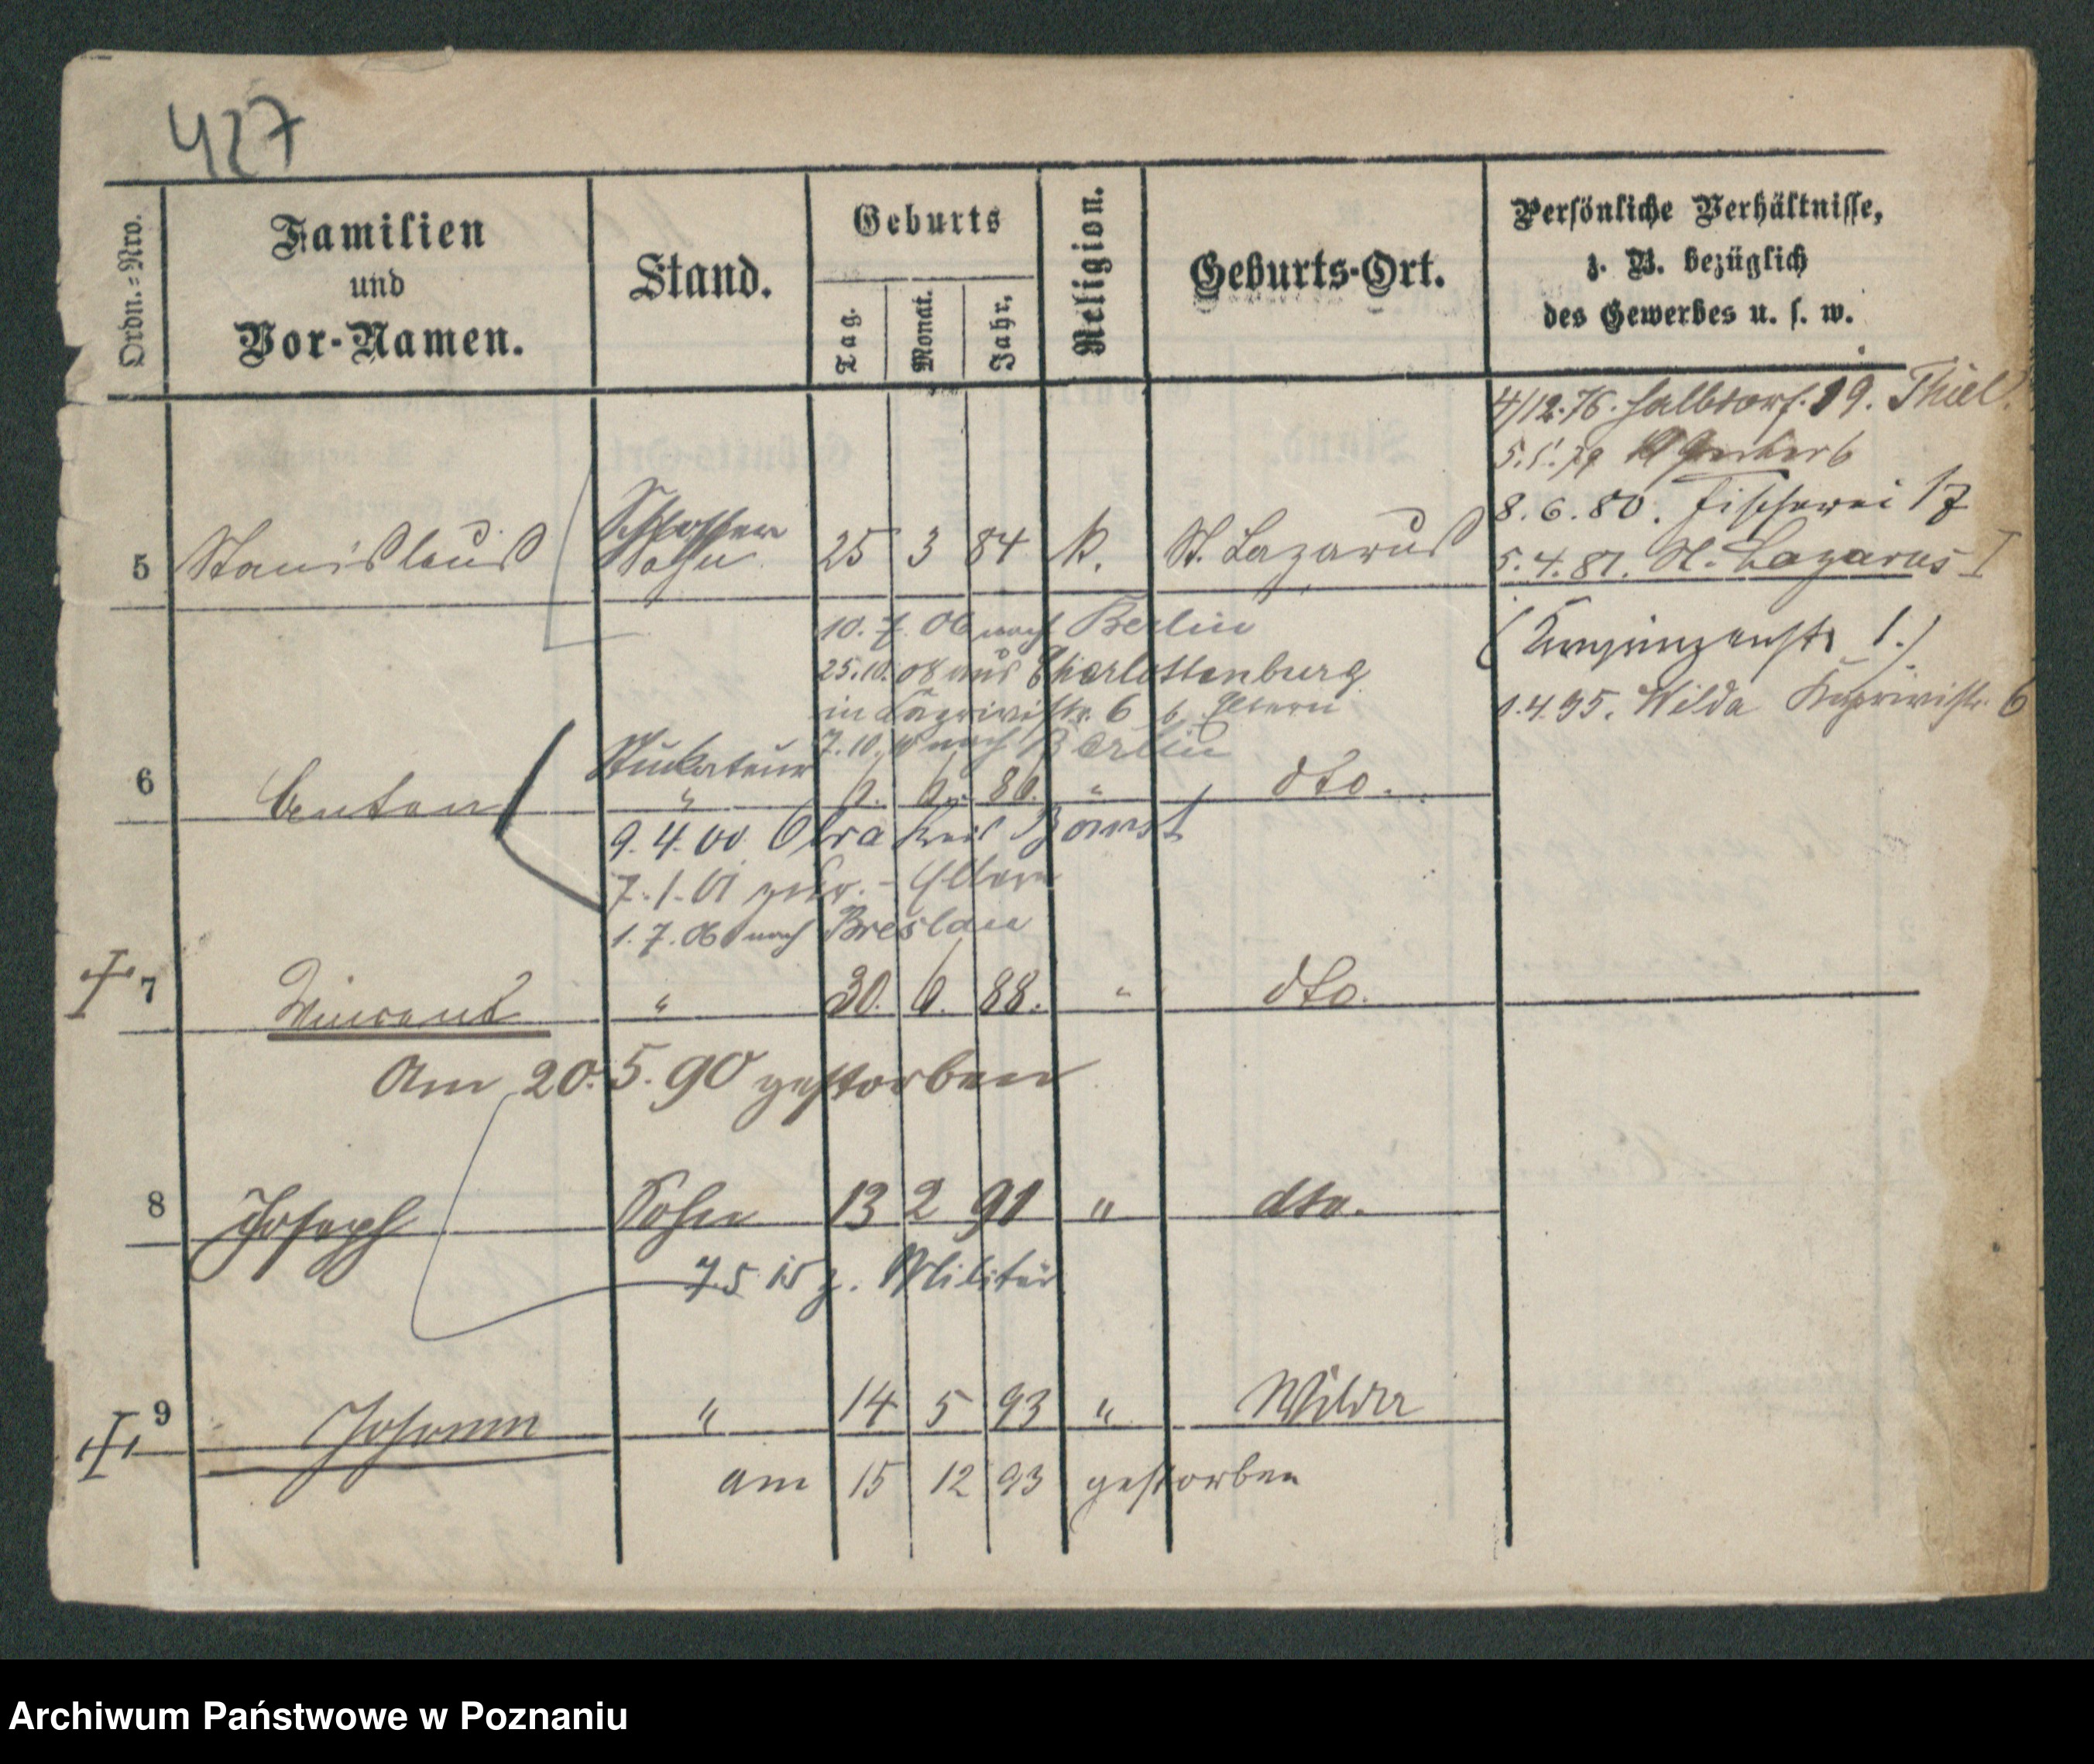 427
Ordn.-Nro.
Familien
und
Vor-Namen.
Stand.
Geburts
Tag.
Monat.
Jahr.
Religion.
Geburts-Ort.
Persönliche Verhältnisse,
z. B. bezüglich
des Gewerbes u. s. w.
4/12.76. Halbdorf. 19. Thiel.
5.5.79
8.6.80. Fischerei 17
5.4.81. St. Lazarus I
1.)
1.4.95. Wilda Kaprivistr. 6
5 Stanislaus Schlosser
Sohn 25 3 84 k. St. Lazarus
10. 7. 06 nach Berlin
25.10.08 aus Charlottenburg
in Caprivistr. 6 b. Eltern
7.10. nach Berlin
Stuckateur
6 Anton " 6. 86. " dto.
9.4.00 Obra Kreis Bomst
7.1.01 zur. - Eltern
1.7.06 nach Breslau
7 Vincent " 30. 6. 88. " dto.
Am 20.5.90 gestorben
8 Joseph Sohn 13 2 91 " dto.
7 5 15 z. Militär
9 Johann " 14 5 93 " Wilda
am 15 12 93 gestorben
Archiwum Państwowe w Poznaniu